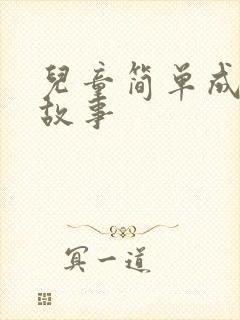 兒童简单成
故事
冥一道